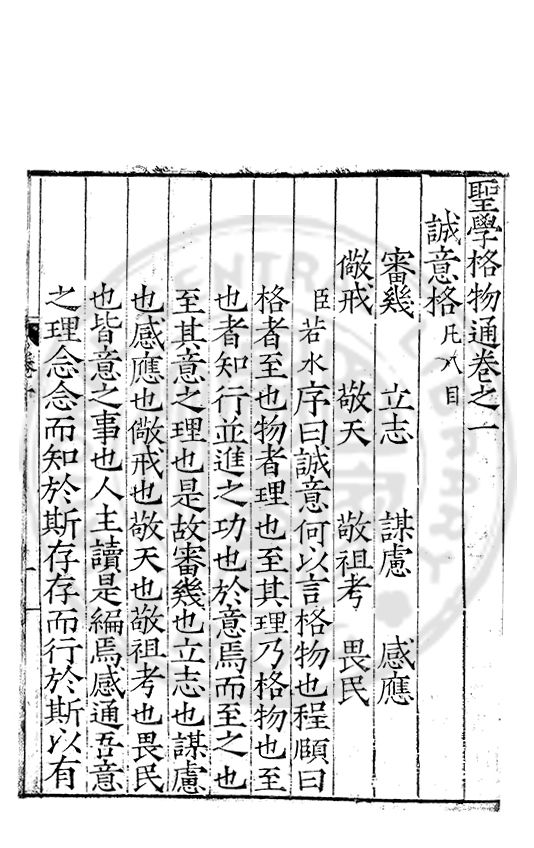 聖學格物通卷之一
誠意格凡八目
審幾 立志 謀慮 感應
儆戒 敬天 敬祖考 畏民
臣若水序曰誠意何以言格物也程頤曰
格者至也物者理也至其理乃格物也至
也者知行並進之功也於意焉而至之也
至其意之理也是故審幾也立志也謀慮
也感應也儆戒也敬天也敬祖考也畏民
也皆意之事也人主讀是編焉感通吾意
之理念念而知於斯存存而行於斯以有